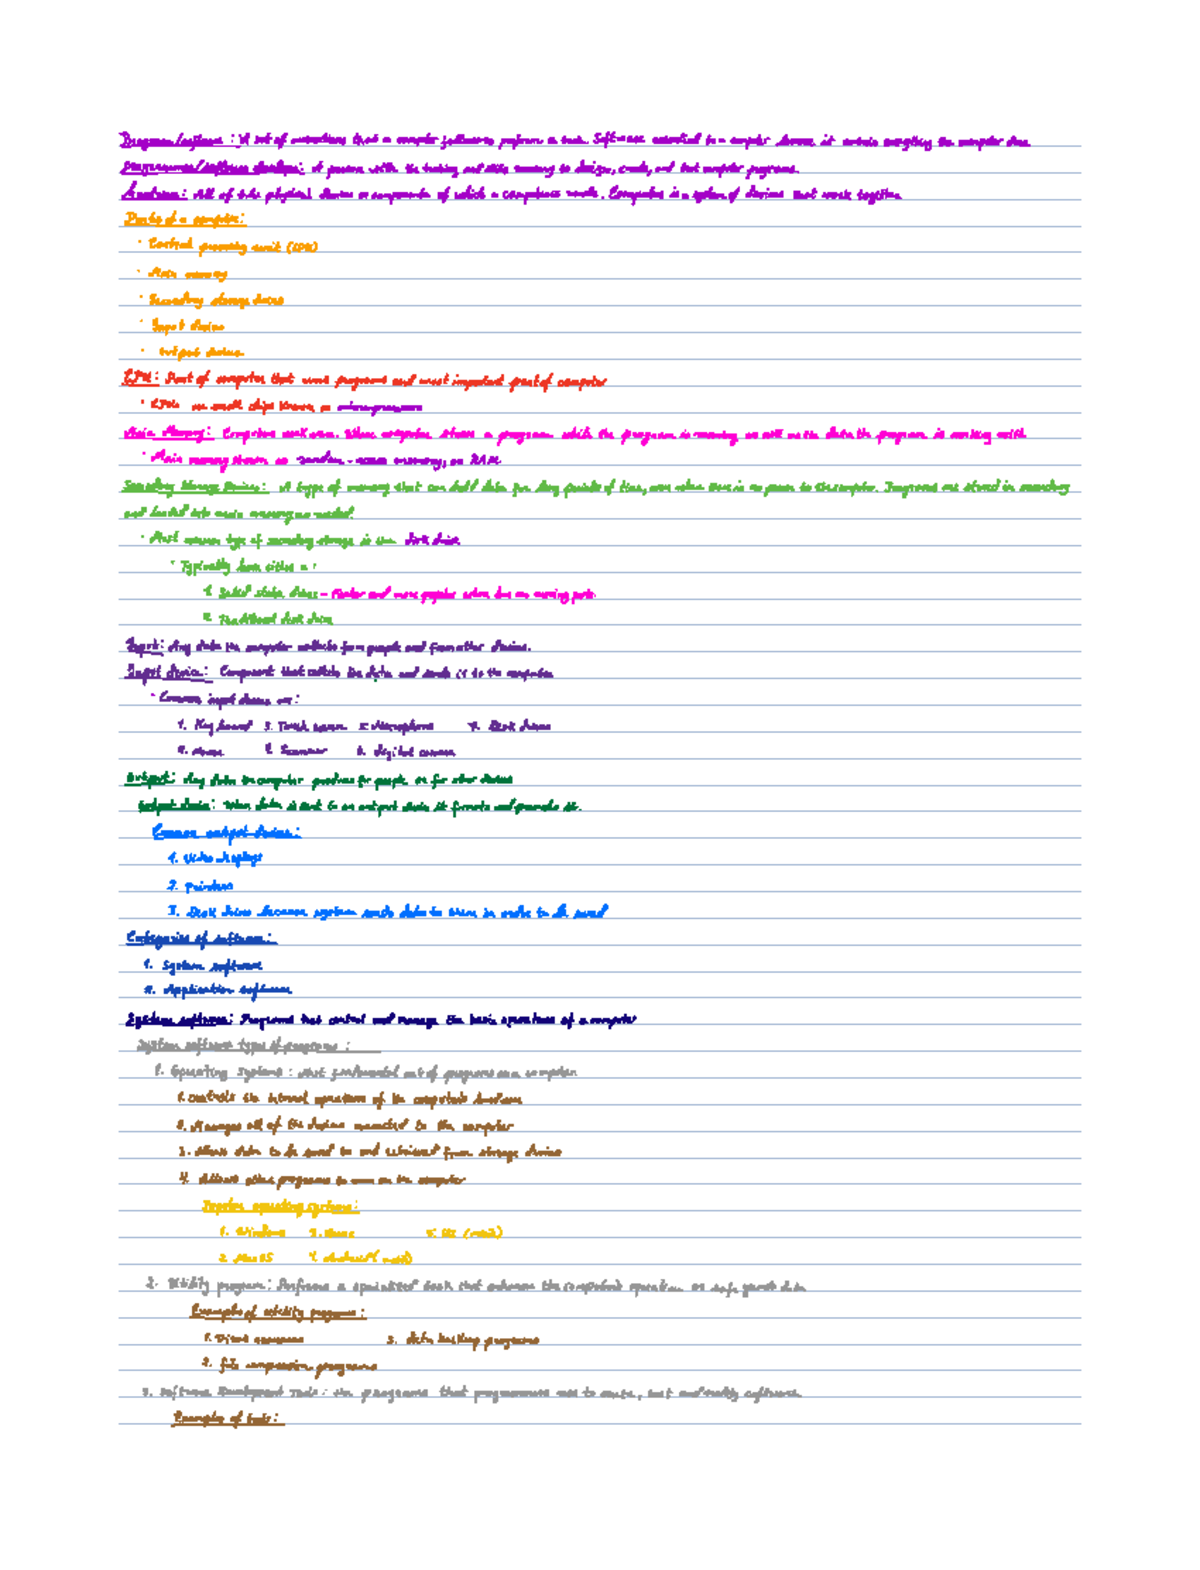 Program/software: A set of instructions that a computer follows to perform a task. Software essential to a computer because it controls everything the computer does.
Programmer/software developer: A person with the training and skills necessary to design, create, and test computer programs.
Hardware: All of the physical devices or components of which a computer is made. Computer is a system of devices that work together.
Parts of a computer:
· Central processing unit (CPU)
· Main memory
· Secondary storage devices
· Input devices
· Output devices
CPU: Part of computer that runs programs and most important part of computer
· CPUs are small chips known as microprocessors
Main Memory: Computers work area. Where computer stores a program while the program is running as well as the data the program is working with.
· Main memory known as random-access memory, or RAM.
Secondary Storage Devices: A type of memory that can hold data for long periods of time, even when there is no power to the computer. Programs are stored in secondary
and loaded into main memory as needed.
· Most common type of secondary storage is the disk drive.
· Typically have either a:
1. Solid state drive - Faster and more popular when has no moving parts.
2. Traditional disk drive
Input: Any data the computer collects from people and from other devices.
Input device: Component that collects the data and sends it to the computer
· Common input devices are:
1. Keyboard 3. Touch screen 5. Microphone 7. Disk drives
2. Mouse 4. Scanner 6. digital camera
Output: Any data the computer produces for people or for other devices
Output device: When data is sent to an output device it formats and presents it.
Common output devices:
1. Video displays
2. Printers
3. Disk drives because system sends data to them in order to be saved
Categories of software:
1. System software
2. Application software
System software: Programs that control and manage the basic operations of a computer
System software types of programs:
1. Operating Systems: most fundamental set of programs on a computer
1. Controls the internal operations of the computer's hardware
2. Manages all of the devices connected to the computer
3. Allows data to be saved to and retrieved from storage devices
4. Allows other programs to run on the computer
Popular operating systems:
1. Windows 3. Linux 5. iOS (mobile)
2. Mac OS 4. Android (mobile)
2. Utility program: Performs a specialized task that enhances the computer's operation or safe guards data
Examples of utility programs:
1. Virus scanners 3. data backup programs
2. file compression programs
3. Software Development Tools: the programs that programmers use to create, test and modify software.
Examples of tools: